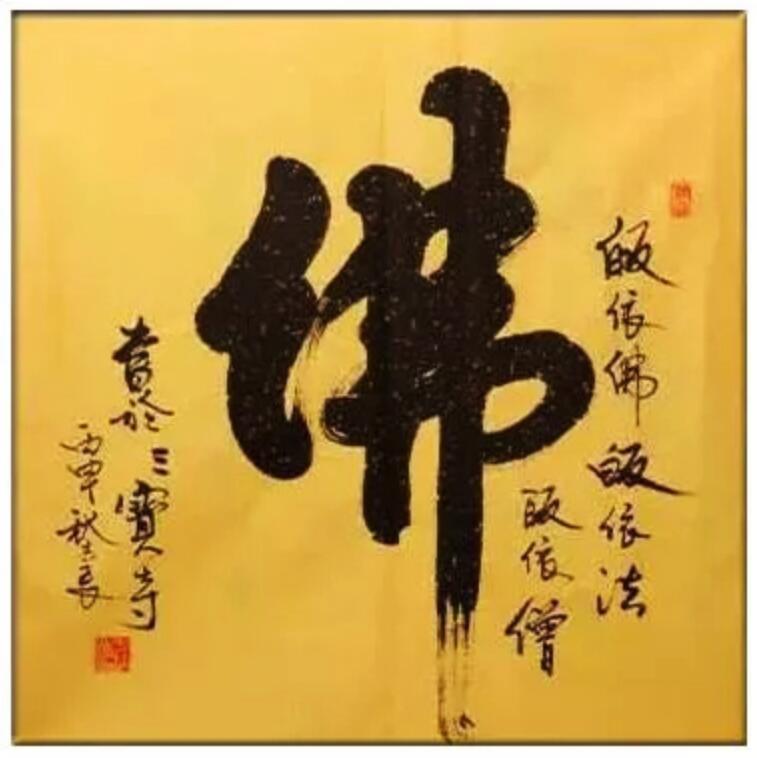 皈依佛皈依法
皈依僧
佛
書於三寶寺
丙申秋